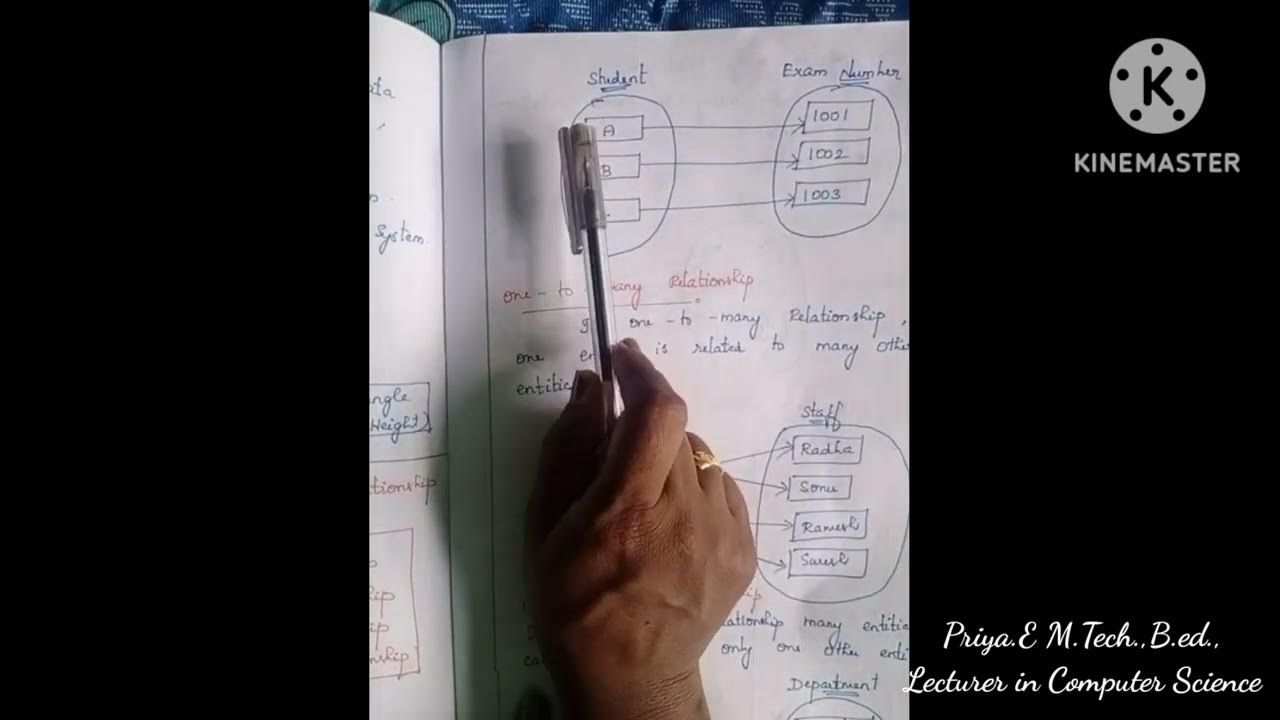 ata
System.
angle
Height)
tionship
ip
ip
nship
Student
Exam Number
A
1001
B
1002
1003
one - to any Relationship
one - to - many Relationship,
one is related to many othe
entitie
Staff
Radha
Sonu
Ramesh
Suresh
ip
ationship many entitie
only one other enti
Department
K
KINEMASTER
Priya.E M.Tech.,B.ed.,
Lecturer in Computer Science